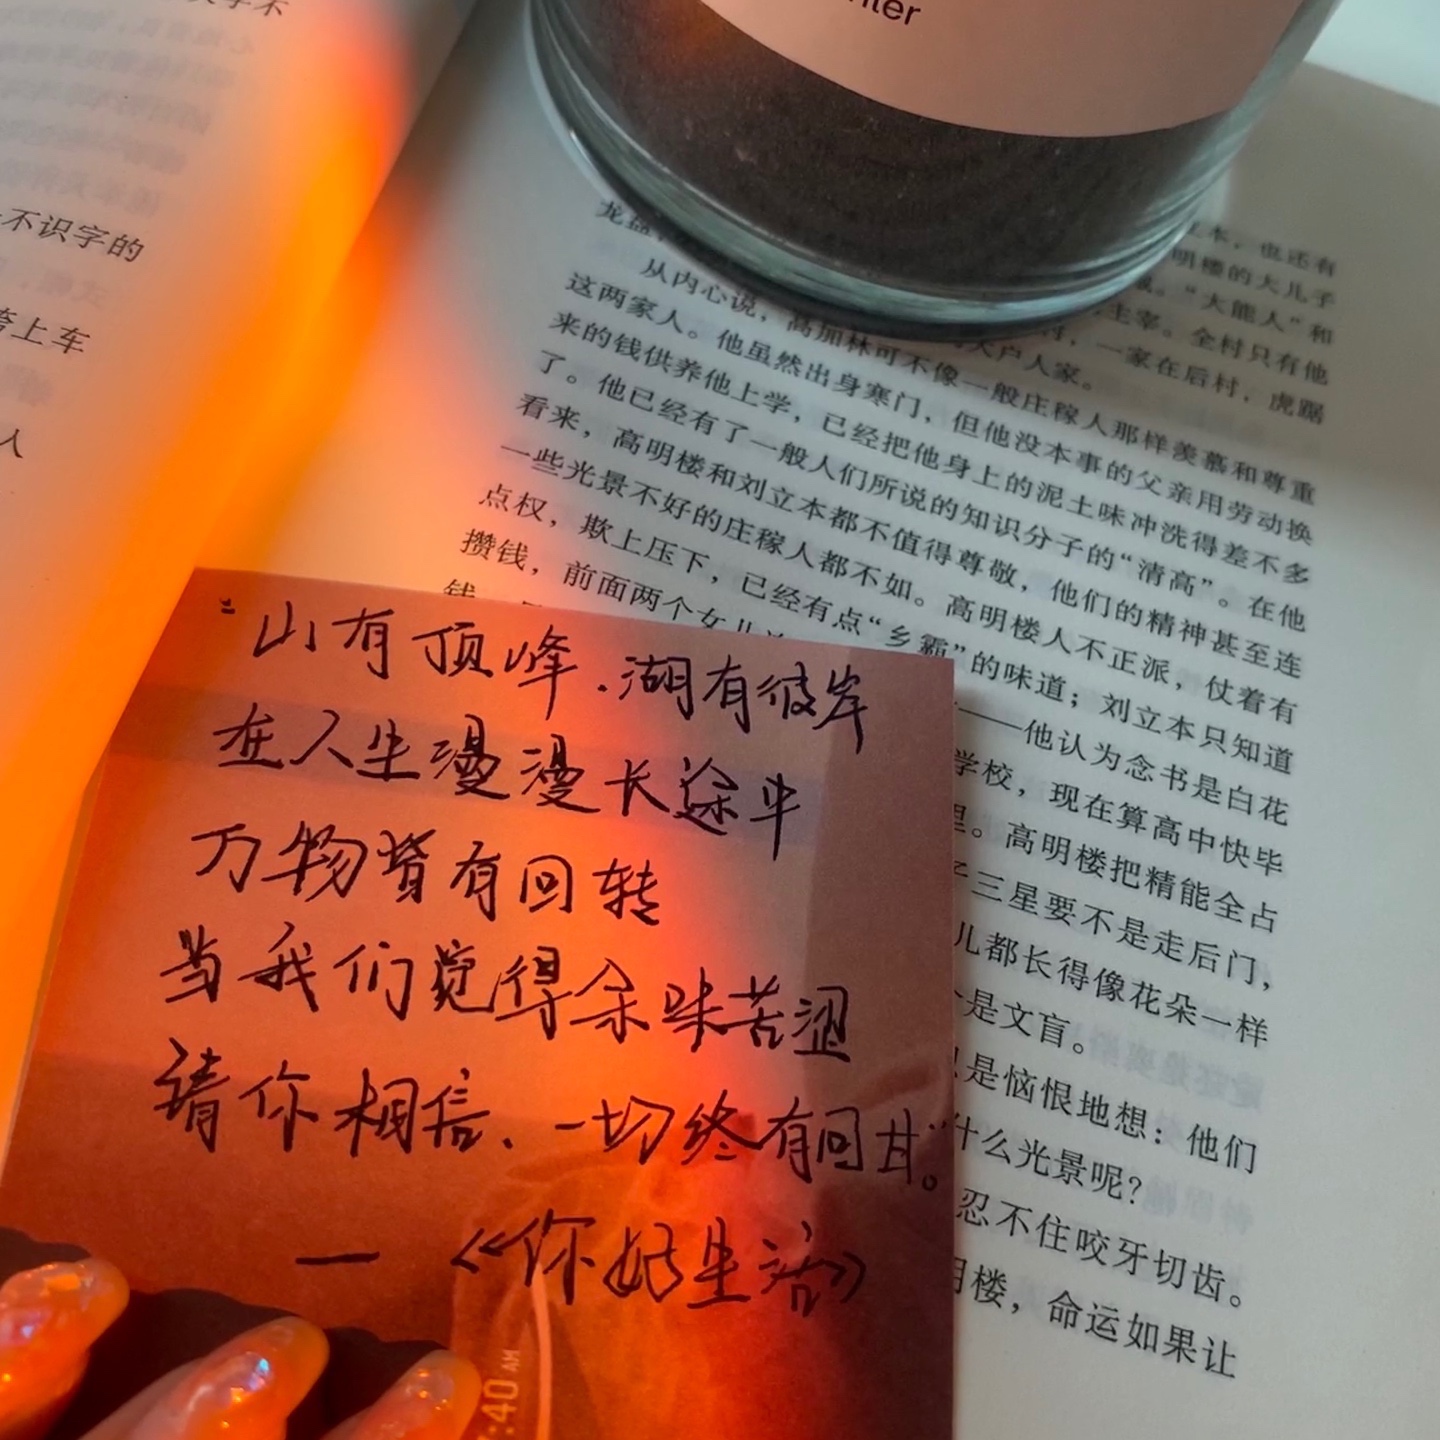 不识字的
上车
人
本，也还有
明楼的大儿子
。“大能人”和
主宰。全村只有他
，一家在后村，虎踞
龙盘，
大户人家。
从内心说，高加林可不像一般庄稼人那样羡慕和尊重
这两家人。他虽然出身寒门，但他没本事的父亲用劳动换
来的钱供养他上学，已经把他身上的泥土味冲洗得差不多
了。他已经有了一般人们所说的知识分子的“清高”。在他
看来，高明楼和刘立本都不值得尊敬，他们的精神甚至连
一些光景不好的庄稼人都不如。高明楼人不正派，仗着有
点权，欺上压下，已经有点“乡霸”的味道；刘立本只知道
攒钱，前面两个女儿
——他认为念书是白花
钱
学校，现在算高中快毕
里。高明楼把精能全占
三星要不是走后门，
儿都长得像花朵一样
是文盲。
是恼恨地想：他们
什么光景呢？
忍不住咬牙切齿。
明楼，命运如果让
“山有顶峰．湖有彼岸
在人生漫漫长途中
万物皆有回转
当我们觉得余味苦涩
请你相信、一切终有回甘”。
—《你好生活》
:40 AM